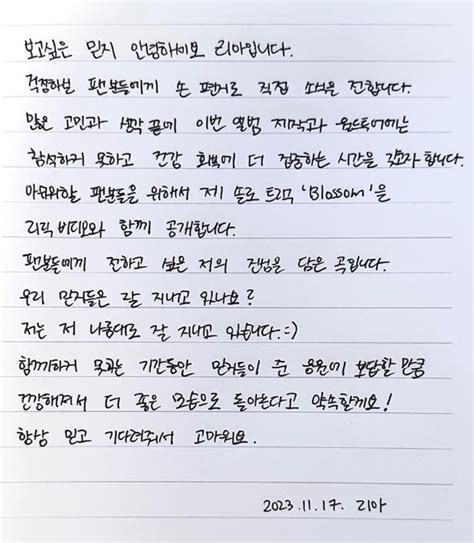 보고싶은 믿지 안녕하세요 리아입니다.
걱정하실 팬분들에게 손 편지로 직접 소식을 전합니다.
많은 고민과 생각 끝에 이번 앨범 제작과 월드투어에는
참석하지 못하고 건강 회복에 더 집중하는 시간을 갖고자 합니다.
아쉬워할 팬분들을 위해서 제 솔로 트랙 'Blossom'을
리릭 비디오와 함께 공개합니다.
팬분들에게 전하고 싶은 저의 진심을 담은 곡입니다.
우리 믿지들은 잘 지내고 있나요?
저는 저 나름대로 잘 지내고 있습니다.=)
함께하지 못하는 기간동안 믿지들이 준 응원에 보답할 만큼
건강해져서 더 좋은 모습으로 돌아온다고 약속할게요!
항상 믿고 기다려줘서 고마워요.
2023.11.17. 리아